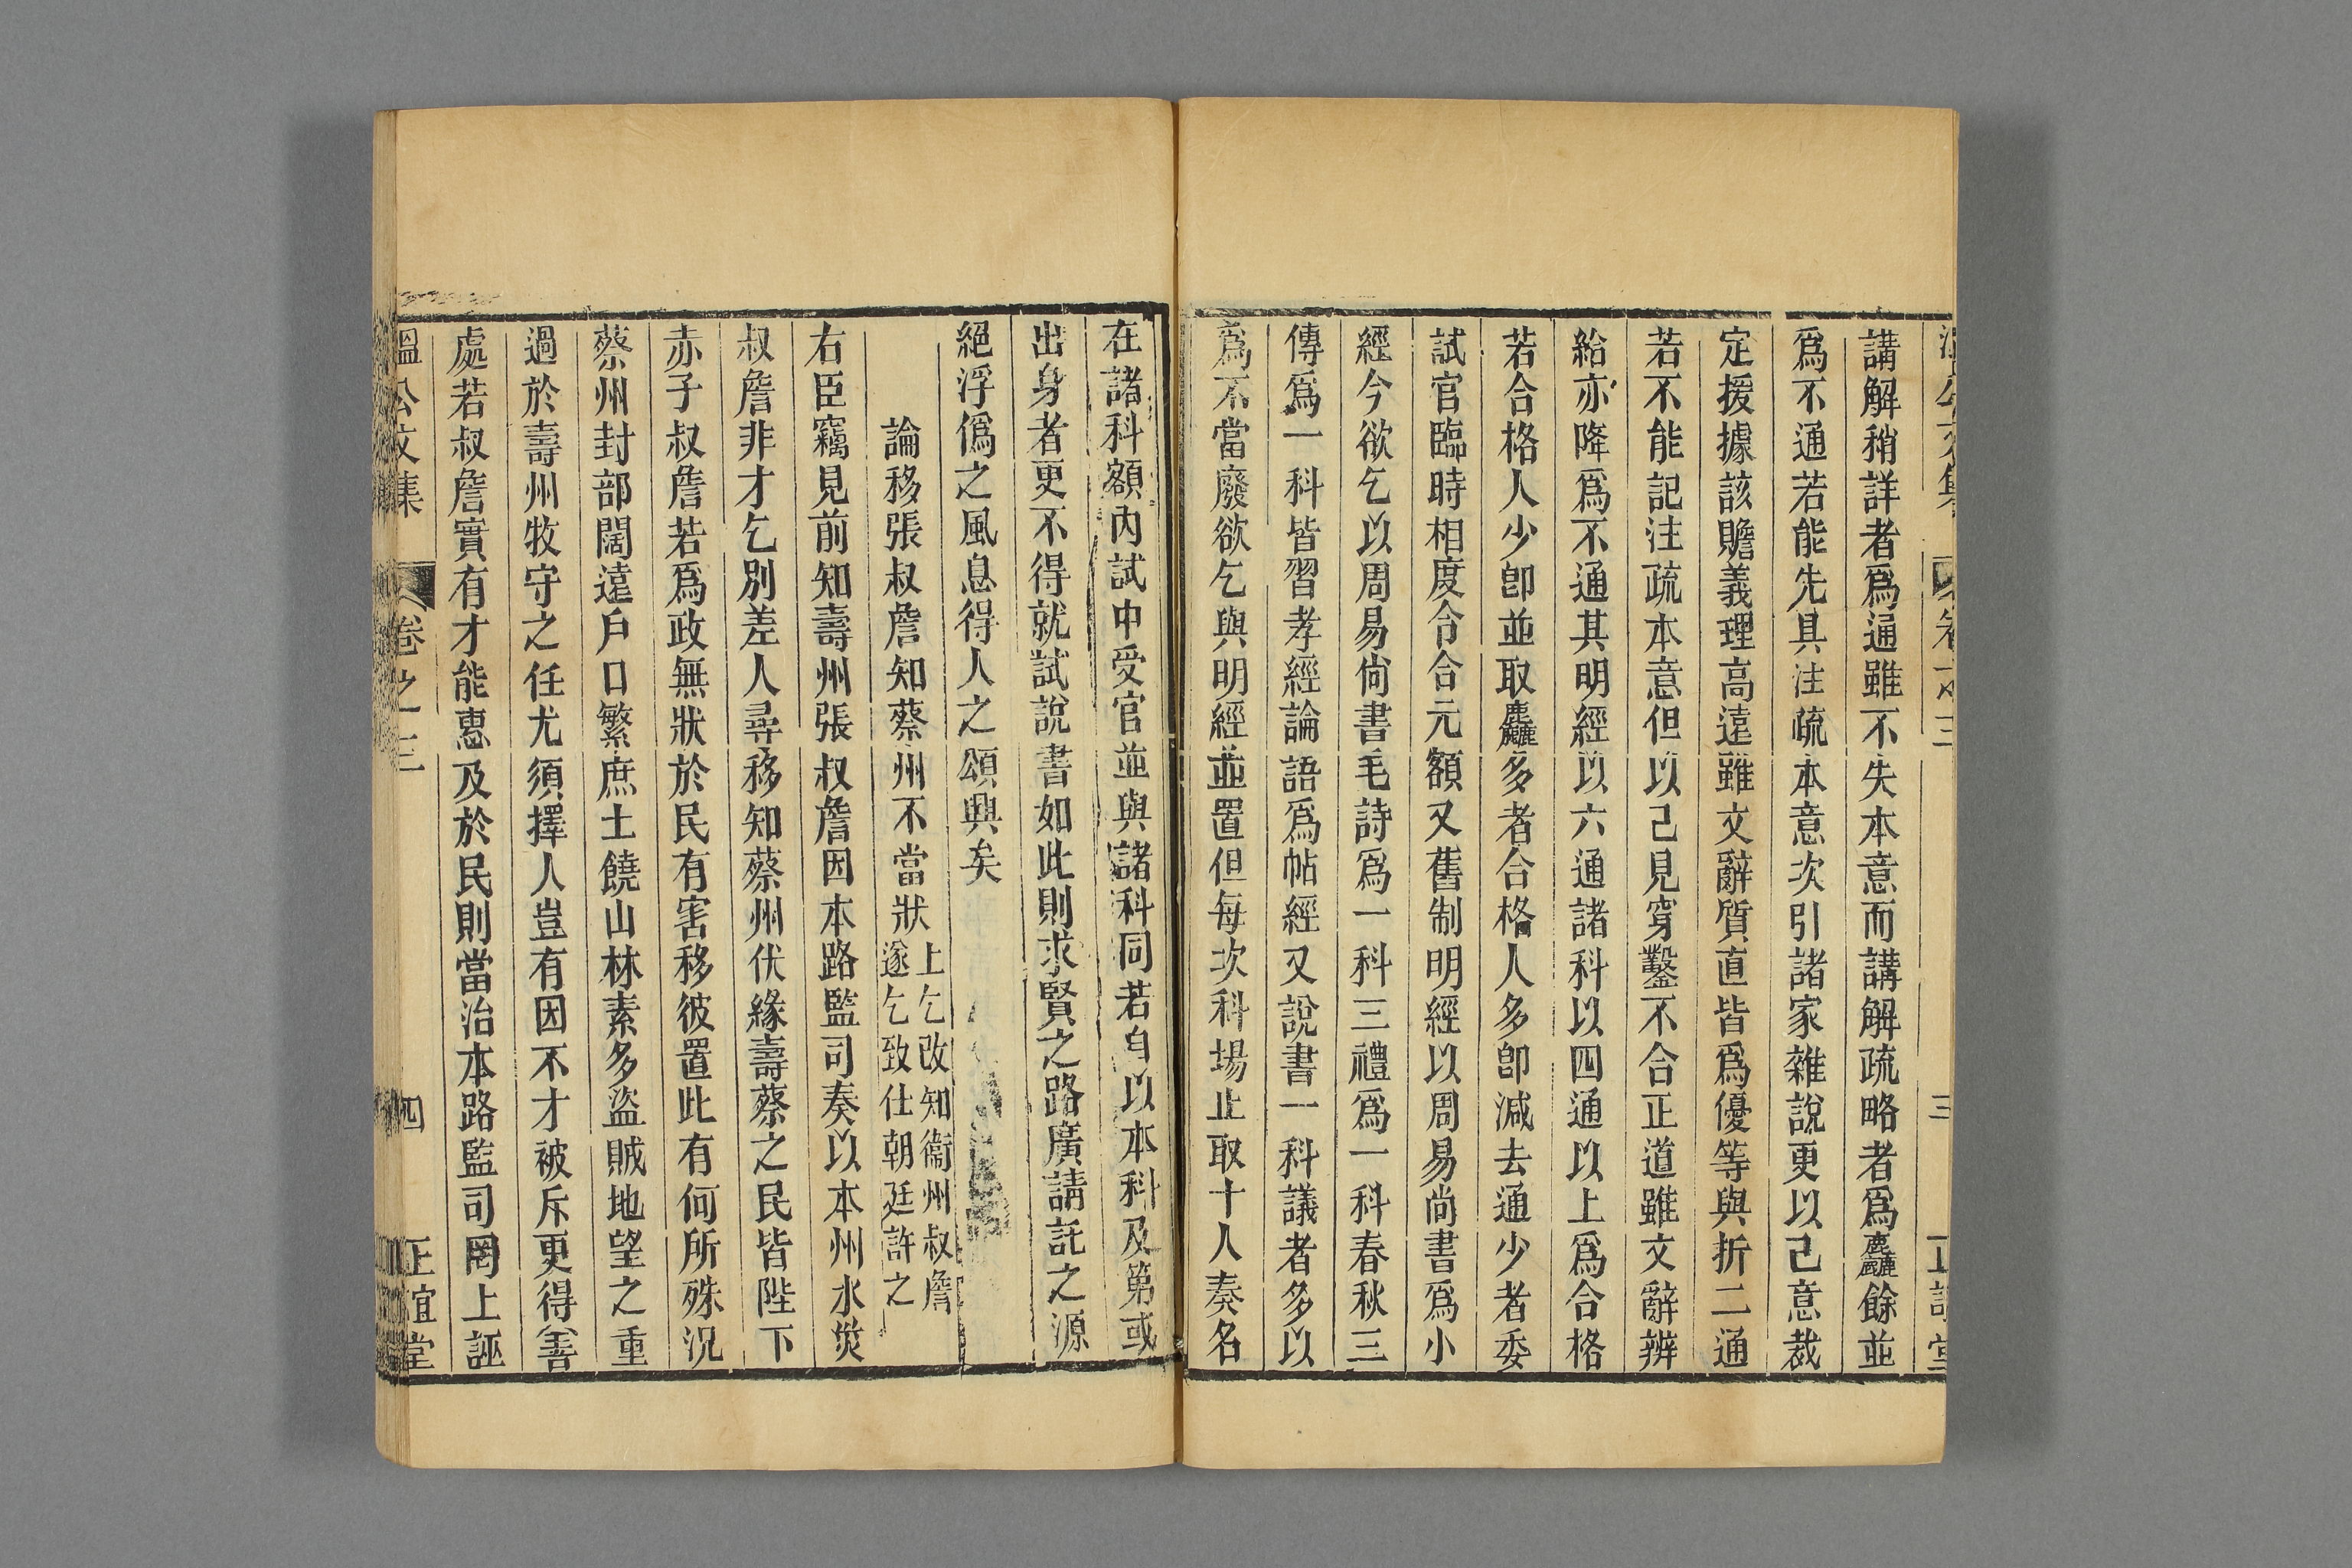 講解稍詳者爲通雖不失本意而講解疏略者爲麤餘並
爲不通若能先具注疏本意次引諸家雜說更以己意裁
定援據該贍義理高遠雖文辭質直皆爲優等與折二通
若不能記注疏本意但以己見穿鑿不合正道雖文辭辨
給亦降爲不通其明經以六通諸科以四通以上爲合格
若合格人少卽並取麤多者合格人多卽減去通少者委
試官臨時相度令合元額又舊制明經以周易尚書爲小
經今欲乞以周易尚書毛詩爲一科三禮爲一科春秋三
傳爲一科皆習孝經論語爲帖經又說書一科議者多以
爲不當廢欲乞與明經並置但每次科場止取十人奏名
在諸科額內試中受官並與諸科同若自以本科及第或
出身者更不得就試說書如此則求賢之路廣請託之源
絕浮僞之風息得人之頌興矣
論移張叔詹知蔡州不當狀
上乞改知衞州叔詹
遂乞致仕朝廷許之
右臣竊見前知壽州張叔詹因本路監司奏以本州水災
叔詹非才乞別差人尋移知蔡州伏緣壽蔡之民皆陛下
赤子叔詹若爲政無狀於民有害移彼置此有何所殊況
蔡州封部闊遠戶口繁庶土饒山林素多盜賊地望之重
過於壽州牧守之任尤須擇人豈有因不才被斥更得善
處若叔詹實有才能惠及於民則當治本路監司罔上誣
溫公文集
卷之三
四
正誼堂